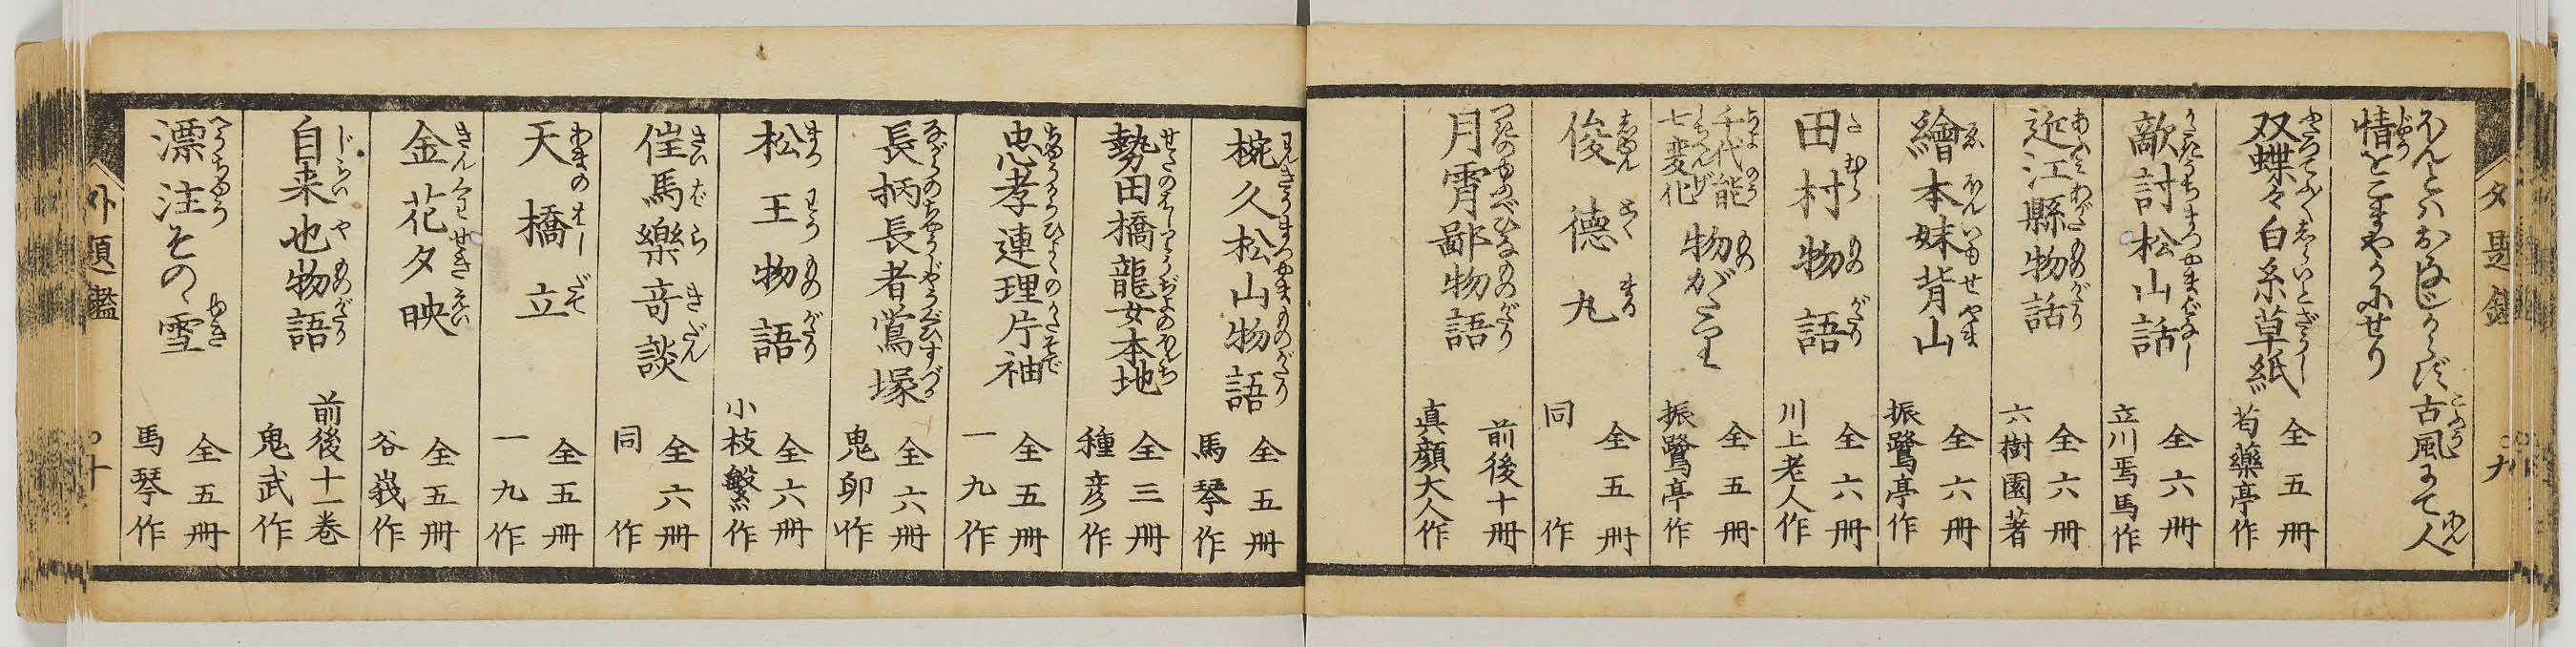 ほんとハおなじからだ古風にて人
情をこまやかにせり
双蝶々白糸草紙 全五冊 芍薬亭作
敵討松山話 全六冊 立川焉馬作
近江縣物語 全六冊 六樹園著
繪本妹背山 全六冊 振鷺亭作
田村物語 全六冊 川上老人作
千代能七変化物がたり 全五冊 振鷺亭作
俊徳丸 全五冊 同作
月霄鄙物語 前後十冊 真顔大人作
九
椀久松山物語 全五冊 馬琴作
勢田橋龍女本地 全三冊 種彦作
忠孝連理片袖 全五冊 一九作
長柄長者鶯塚 全六冊 鬼卵作
松王物語 全六冊 小枝繁作
催馬樂奇談 全六冊 同作
天橋立 全五冊 一九作
金花夕映 全五冊 谷峩作
自来也物語 前後十一巻 鬼武作
漂注その雪 全五冊 馬琴作
外題鑑 十